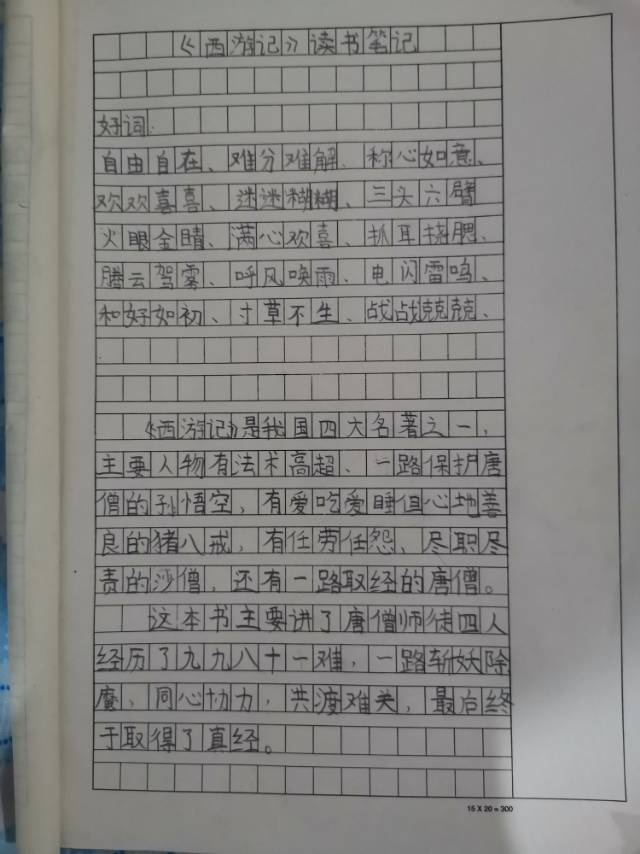 《西游记》读书笔记
好词:
自由自在、难分难解、称心如意、
欢欢喜喜、迷迷糊糊、三头六臂
火眼金睛、满心欢喜、抓耳挠腮、
腾云驾雾、呼风唤雨、电闪雷鸣、
和好如初、寸草不生、战战兢兢、
《西游记》是我国四大名著之一,
主要人物有法术高超、一路保护唐
僧的孙悟空,有爱吃爱睡但心地善
良的猪八戒,有任劳任怨、尽职尽
责的沙僧,还有一路取经的唐僧。
这本书主要讲了唐僧师徒四人
经历了九九八十一难,一路斩妖除
魔,同心协力,共渡难关,最后终
于取得了真经。
15 X 20 = 300